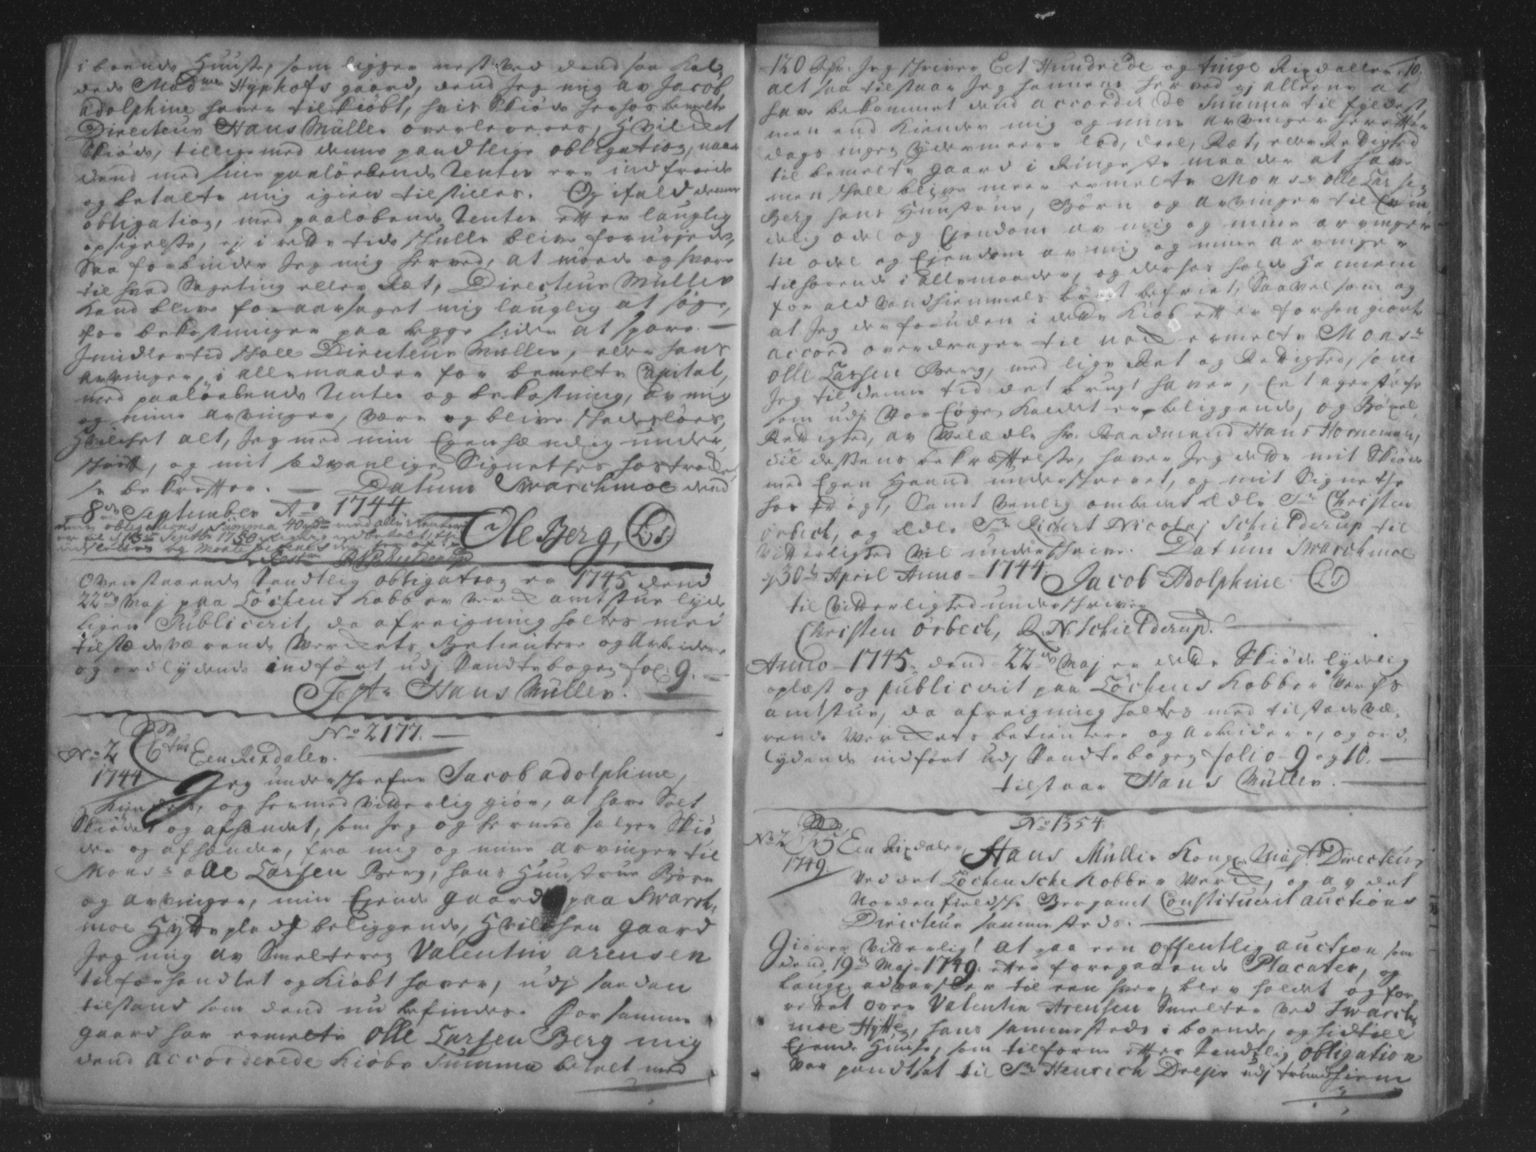 iboende Huuse, som ligger nest ved dend saa kal-
dede Mad.me Hyphofs gaard, dend Jeg mig av Jacob
Adolphine haver tilkiøbt, hvis Skiøde herhos bemelte
Directeur Hans Müller overleveres, Hvilcket
Skiøde, tillige med denne pandtlige obligation, naar
dend med sine paaløbende Renter er indfriede
og betalte mig igien tilstilles. Og ifald denne
obligation, med paaløbende Renter efter lauglig
opsigelse, ej i rette tide skulle blive
Saa forbinder Jeg mig herved, at møde og svare
til hvad Sageting eller Ræt, Directeur Müller
kand blive foraarsaget mig lauglig at søge,
for bekostninger paa begge sider at spare. —
Imidlertid skall Directeur Müller, eller hans
arvinger, i allemaader for bemelte Capital,
med paaløbende Renter og bekostning, av mig
og mine arvinger, være og blive skadesløes,
Hvilchet alt, Jeg med min Egenhændig under-
skrift, og mit sædvanlige Signethes hostrøckelse
bekræfter. — Datum Swarchmoe dend
8de September Ao 1744.
Ole Berg, (LS)
denne obligations Summa 40 rdr med alle Renter
er til 1750
Ovenstaaende Pandtlig obligation er 1745 dend
22de Maj paa Løckens Kobberverks amtstue lyde-
ligen Publicerit, da afreigning holtes med
tilstædeværende Werckets Betientere og Arbeidere
og ordlydende indført udj Pandtebogen fol: 9. —
Test. Hans Müller.
No 2177.
No 2
1744
Een Rixdaler.
Jeg underschrefne Jacob adolphine,
Kiender, og hermed vitterlig giør, at have Solt
Skiødet og afhendet, som Jeg og hermed sælger Skiø-
der og afhender, fra mig og mine arvinger til
Mons:r olle Larsen Berg, hans Hustrue Børn
og arvinger, min Eyende gaard paa Swarch-
moe Hytteplads beliggende, Hvilchen gaard
Jeg mig av Smelteren Valentin arensen
tilforhandlet og Kiøbt haver, udj saadan
tilstand som dend nu befindes. For samme
gaard har ermelte Olle Larsen Berg mig
dend accorderede Kiøbe Summa betalt med
10.
120 Rdr: Jeg skriver Eet Hundrede og tiuge Rixdaller,
alt saa tilstaar Jeg hannem herved ej allene at
have bekommet dend accorderede Summa til fyldest,
men end kiender mig og mine arvinger herefter
dags ingen videremeere lod, deel, Ræt, eller Rettighed
til bemelte gaard i Ringeste maader at have
men skall blive meer ermelte Mons:r Olle Larsen
Berg hans Hustrue, Børn og arvinger til Evin-
delig odel og Eyendom av mig og mine arvinger
til odel og Eyendom av mig og mine arvinger
tilhørende i allemaader, og derhos holde Hannem
for all vandhiemmels brøst befriet, Saavelsom og
at Jeg derforuden i dette Kiøb efter forhen giorte
accord overdrager til velermelte Mons:r
Olle Larsen Berg, med lige Ret og Rettighed, som
Jeg til denne tid det brugt haver,
som udj kaldet er beliggende, og Bøxel
Rettighed, av Welædle Hr. Raadmand Hans Hornemann,
til dessens bekræftelse, haver Jeg dette mit Skiøde
med Egen Haand underskrevet, og mit Signethe
hostrøgt, samt venlig ombedet Ædle Sr. Christen
Ørbech, og Ædle Sr. Richert Nicolaj Schielderup til
Vitterlighed vil underskrive. Datum Swarchmoe
d 30te April Anno 1744. Jacob Adolphine. (LS)
til Vitterlighed underschriver
Christen Ørbech, R N Schielderup. —
Anno 1745. dend 22de Maj er dette Skiøde lydelig
oplæst og publicerit paa Løckens Kobber Wercks
amtstue, da afreigning holtes med tilstædevæ-
rende Werckets betientere og Arbeidere, og ord-
lydende indført udj Pandtebogen folio 9 og 10. —
tilstaar Hans Müller. —
No 1354
No 2
1749
Een Rixdaler.
Hans Müller Kongl. Maj.ts Directeur
Ved det Løckensche Kobber Werck, og av det
Nordenfieldske Bergamt Constituerit auctions
Directeur sammesteds. —
Giører Vitterligt! At paa een offentlig auction som
dend 19de Maj 1749. efter foregaaende Placater, og
lauge advarsler til een hver, blev holdet og for-
rettet over Valentin Arensen Smelter ved Swarch-
moe Hytte, hans sammesteds iboende, og hidtil
Eyende Huuse, som tilforn efter Pandtlig obligation
var pandsat til Sr Henrich Dreyer udj Trundhiem